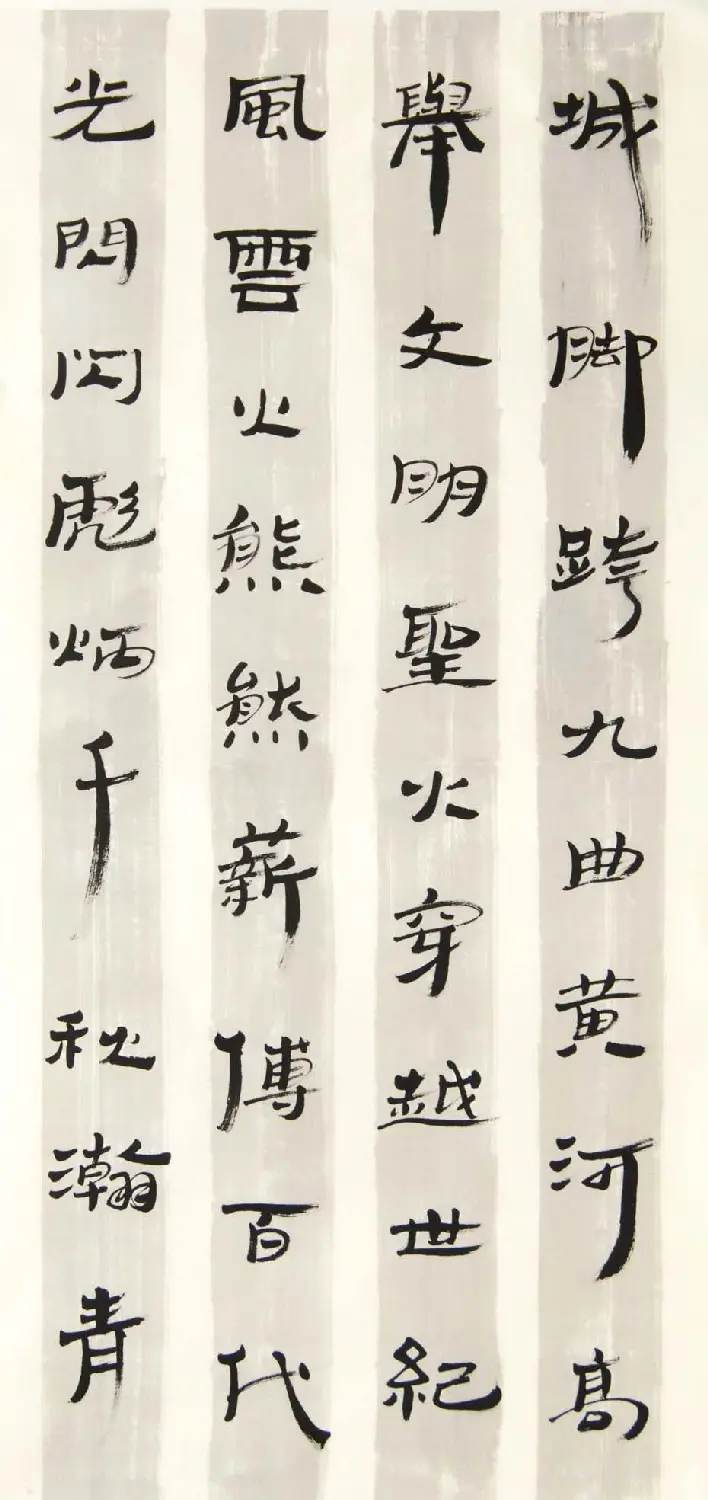 城脚跨九曲黄河高
舉文明聖火穿越世紀
風雲火熊熊薪傳百代
光閃閃彪炳千秋瀚青